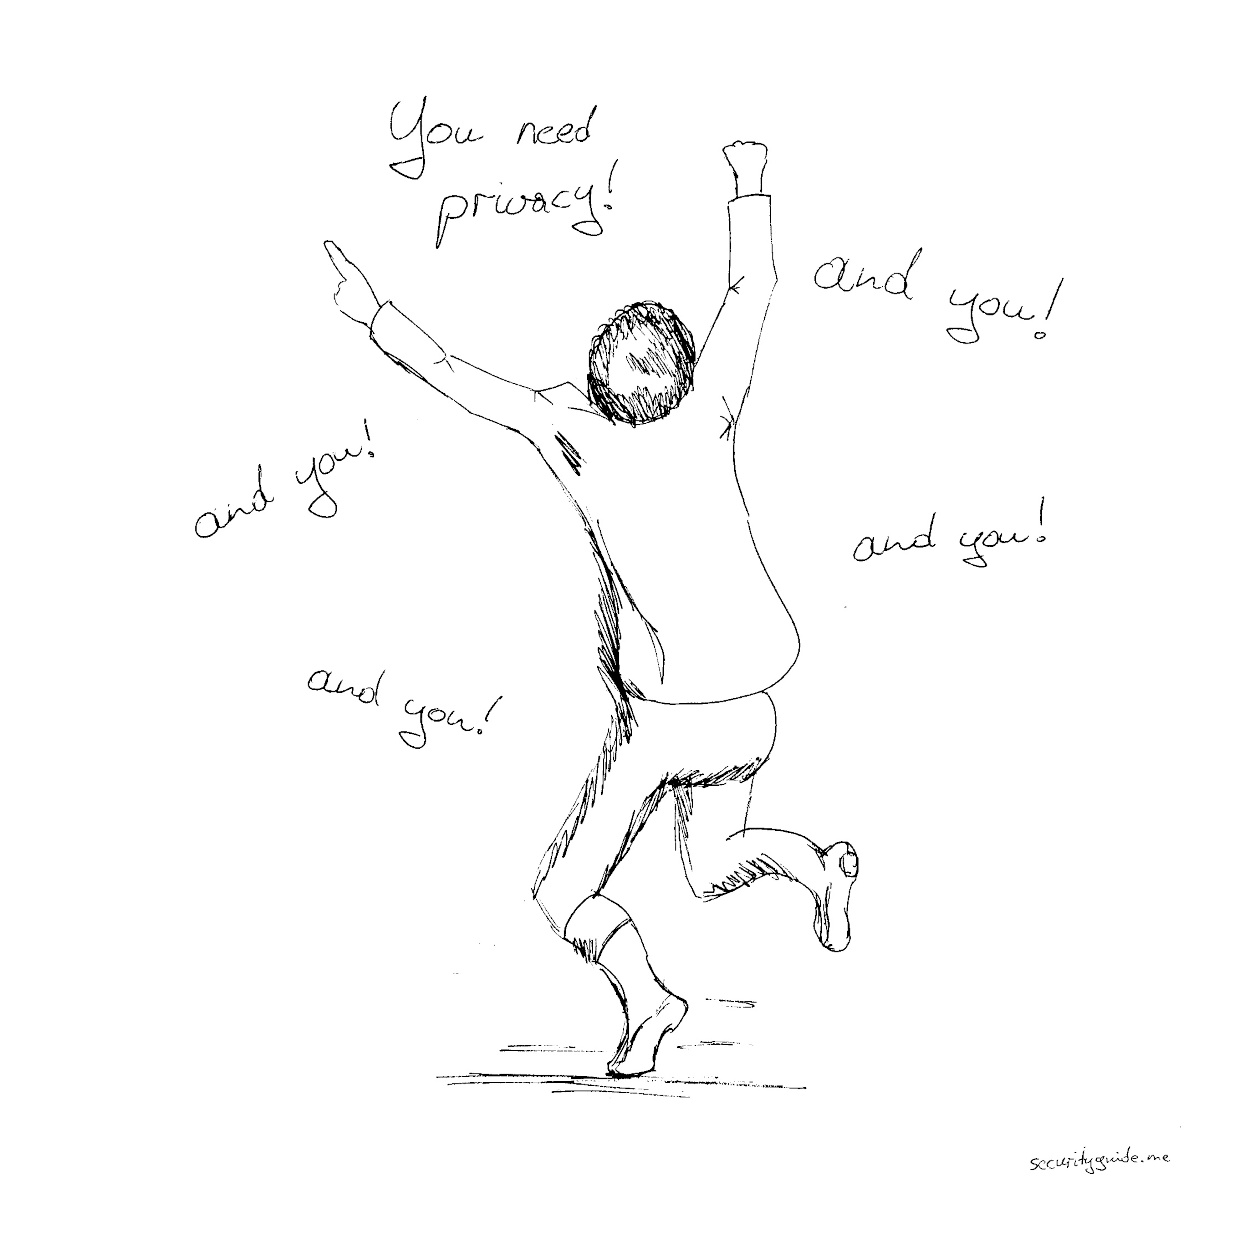 You need
privacy!
and you!
and you!
and you!
and you!
securityguide.me